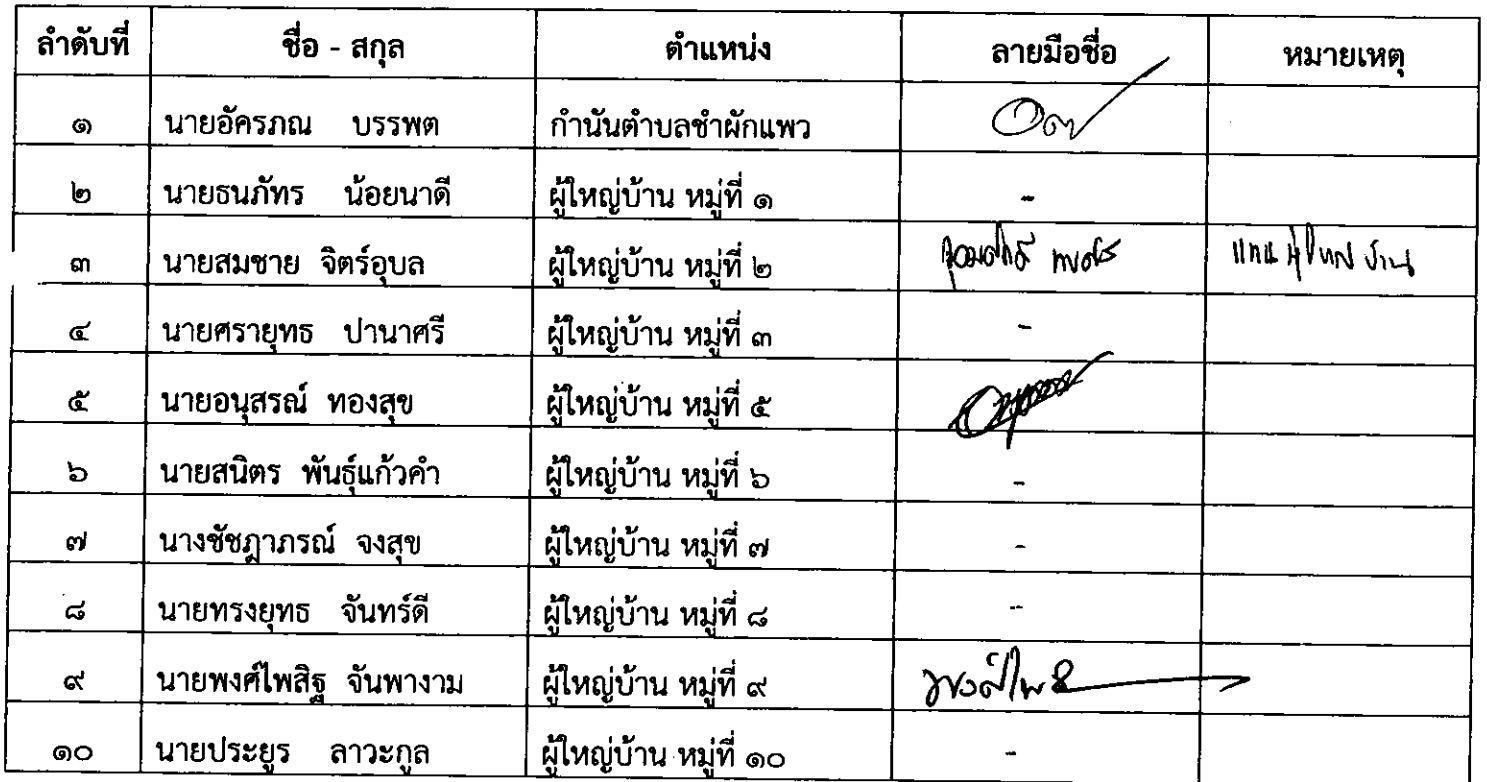 ลำดับที่ ชื่อ - สกุล ตำแหน่ง ลายมือชื่อ หมายเหตุ
๑ นายอัครภณ บรรพต กำนันตำบลชำผักแพว
๒ นายธนภัทร น้อยนาดี ผู้ใหญ่บ้าน หมู่ที่ ๑ -
๓ นายสมชาย จิตร์อุบล ผู้ใหญ่บ้าน หมู่ที่ ๒ แทนผู้ใหญ่บ้าน
๔ นายศรายุทธ ปานาศรี ผู้ใหญ่บ้าน หมู่ที่ ๓ -
๕ นายอนุสรณ์ ทองสุข ผู้ใหญ่บ้าน หมู่ที่ ๕
๖ นายสนิตร พันธุ์แก้วคำ ผู้ใหญ่บ้าน หมู่ที่ ๖ -
๗ นางชัชฎาภรณ์ จงสุข ผู้ใหญ่บ้าน หมู่ที่ ๗ -
๘ นายทรงยุทธ จันทร์ดี ผู้ใหญ่บ้าน หมู่ที่ ๘ -
๙ นายพงศ์ไพสิฐ จันพางาม ผู้ใหญ่บ้าน หมู่ที่ ๙
๑๐ นายประยูร ลาวะกูล ผู้ใหญ่บ้าน หมู่ที่ ๑๐ -